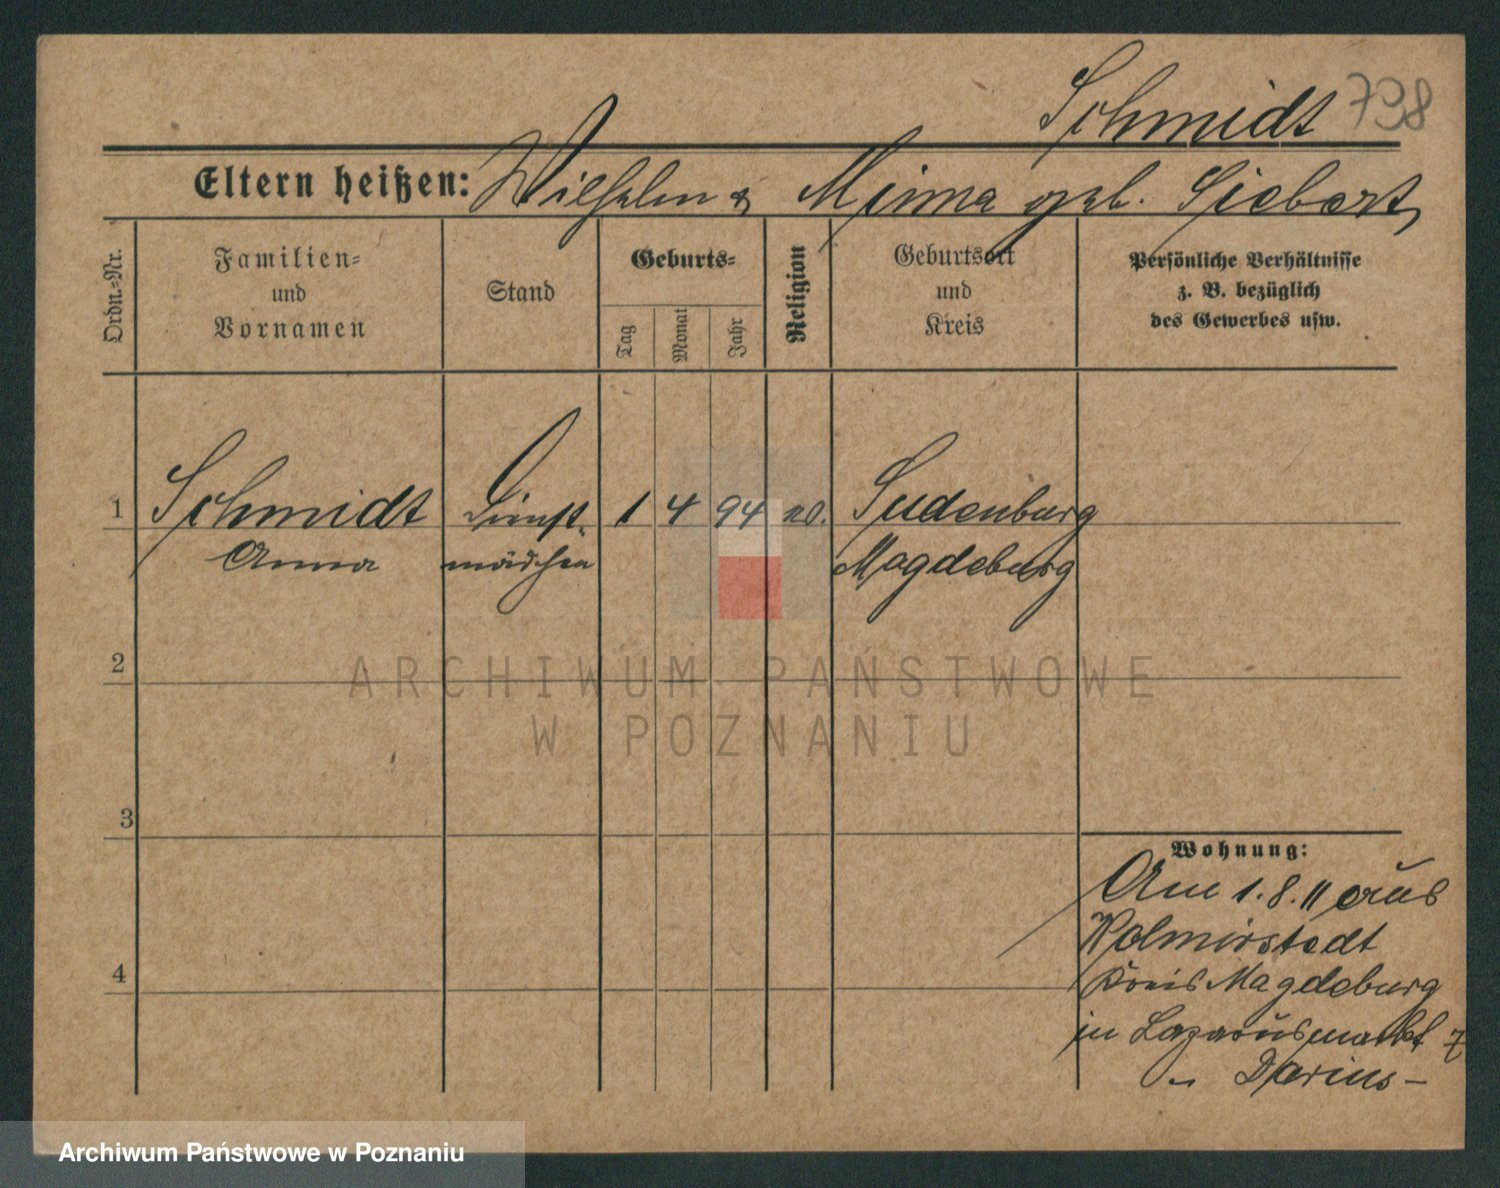 Schmidt 798
Eltern heißen: Wilhelm & Minna geb. Siebert,
Ordn.-Nr.
Familien-
und
Vornamen
Stand
Geburts-
Tag
Monat
Jahr
Religion
Geburtsort
und
Kreis
Persönliche Verhältnisse
z. B. bezüglich
des Gewerbes usw.
1 Schmidt Dienst- 1 4 94 Sudenburg
Anna mädchen Magdeburg
2
ARCHIWUM PAŃSTWOWE
W POZNANIU
3
Wohnung:
Am 1.8.11 aus
Wolmirstedt
4
Kreis Magdeburg
in Lazarusmarkt 7
- Darius -
Archiwum Państwowe w Poznaniu